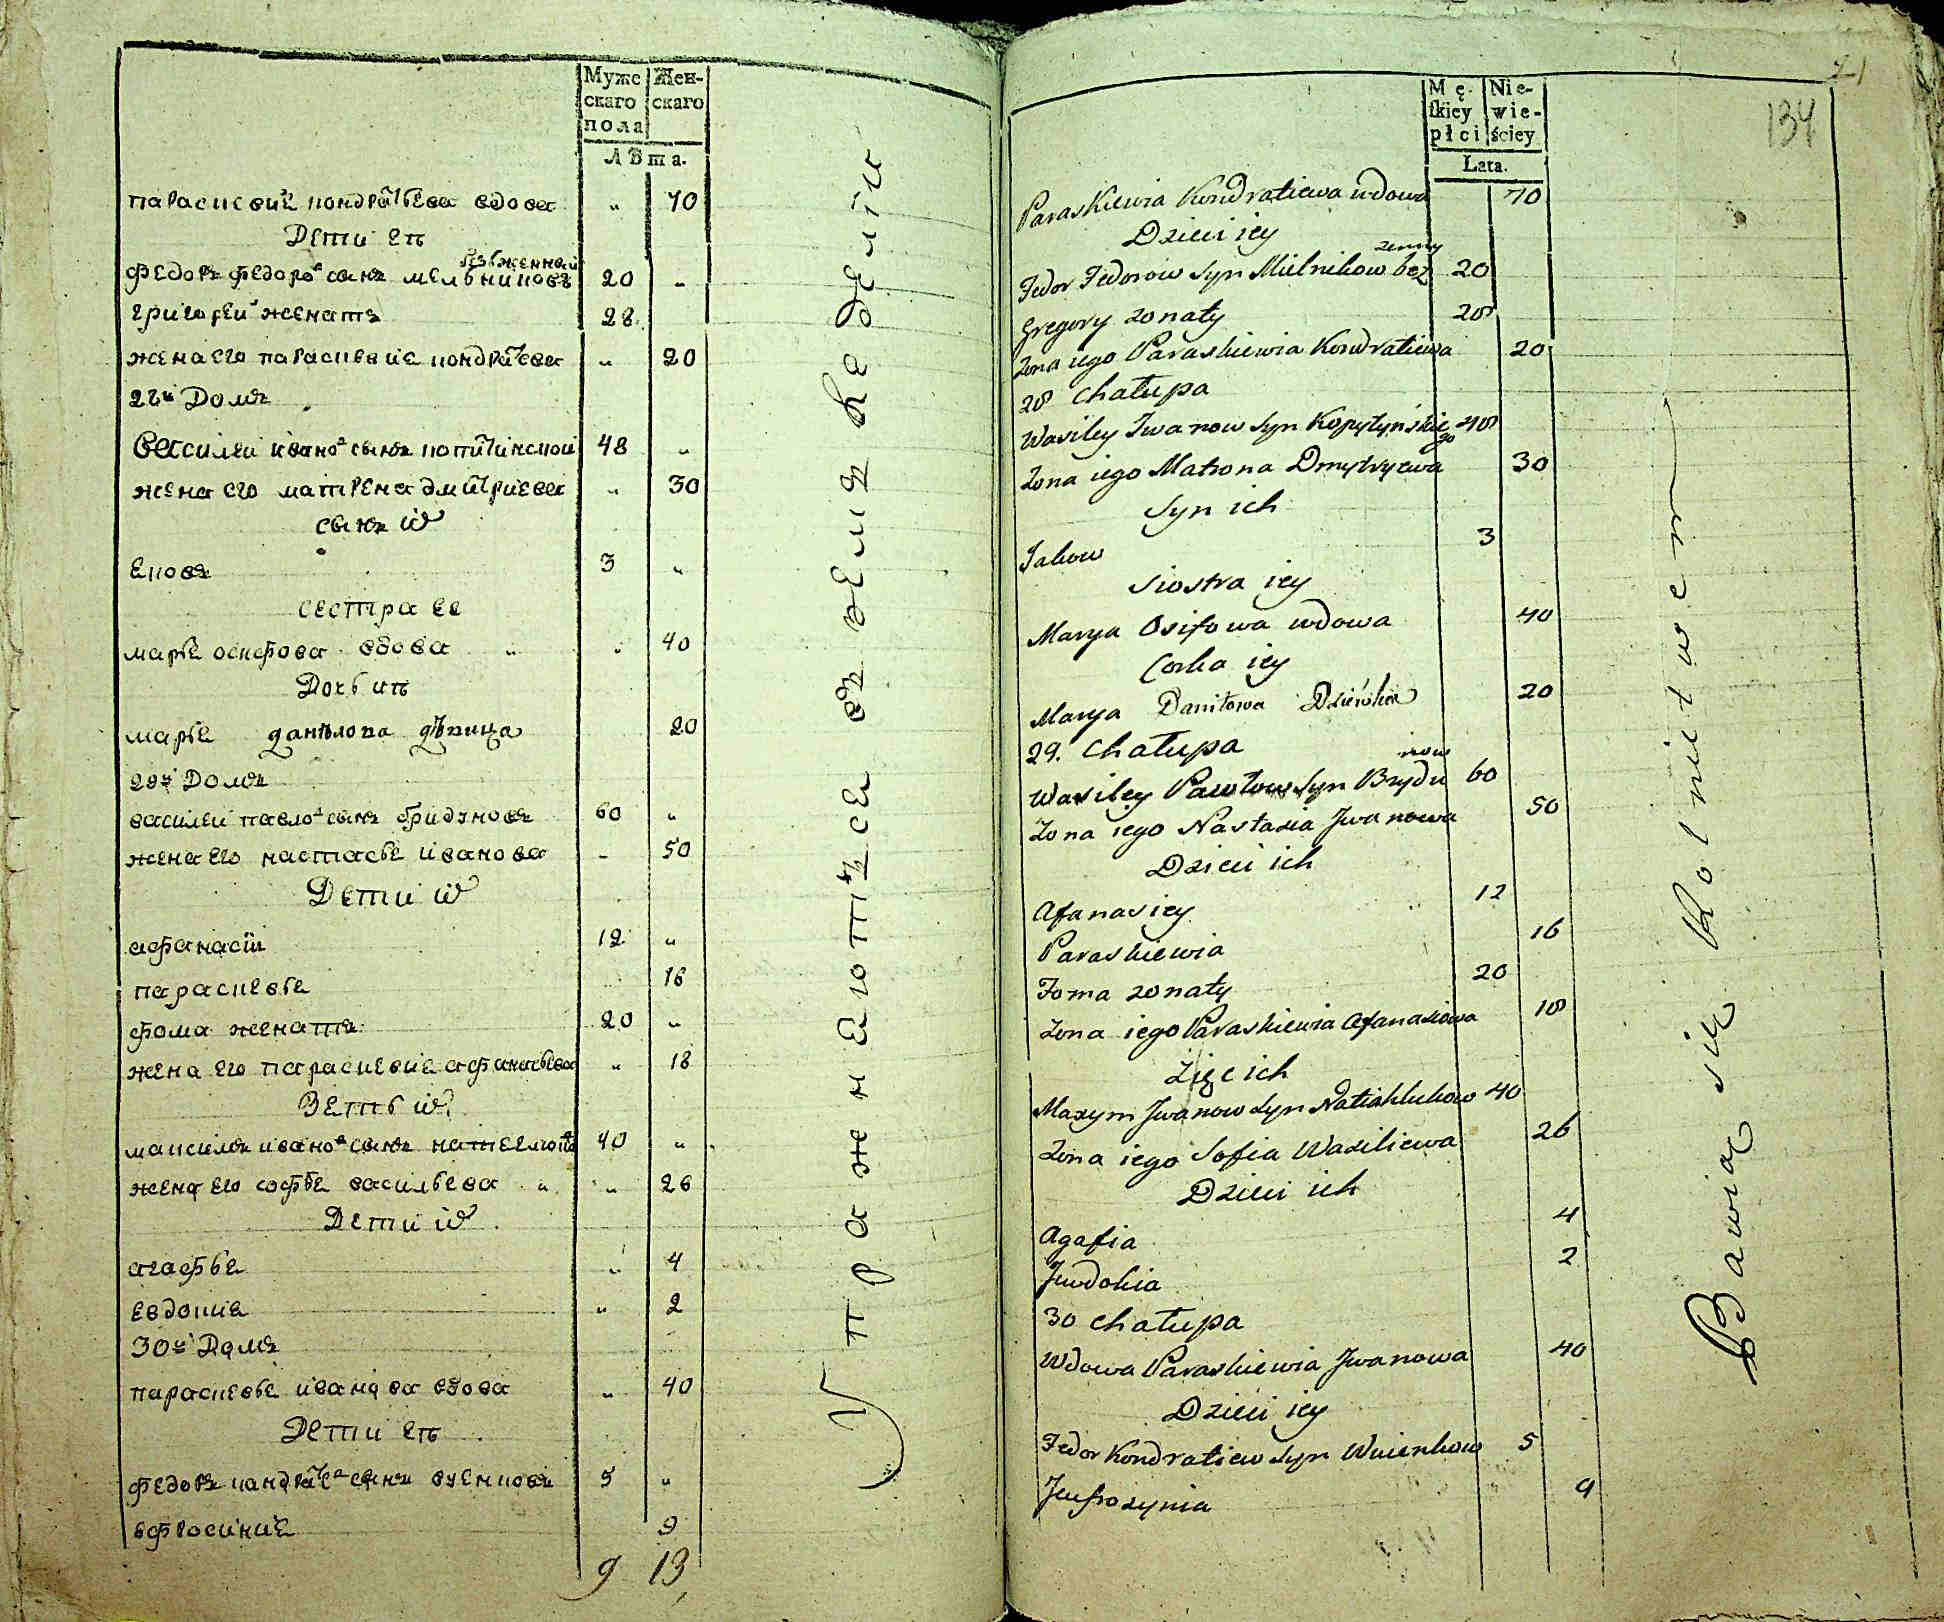 Муже Жен-
скаго скаго
пола
Лѣта.
параскевиѣ кондратьева вдова " 70
Дети еѣ
безженнай
федоръ федоровъ сынъ мельниковъ 20 "
григорей женатъ 28
жена его параскевие кондратева " 20
28й Домъ
Василеи ивановъ сынъ 48 "
жена его матрена дмитриева " 30
сынъ их
ековъ 3 "
сестра ее
марье осифова вдова " 40
Дочь иѣ
марье данѣлова дѣвица 20
29й Домъ
василеи павловъ сынъ бридуновъ 60 "
жена его настасье иванова - 50
Дети их
афанасiи 12 "
параскевье 16
фома женатъ 20 "
жена его параскевие афанасьева " 18
Зеть их
максимъ ивановъ сынъ 40 "
жена его софье васильева " 26
Дети их
агафье " 4
евдокие " 2
30й Домъ
параскевье иванова вдова " 40
Дети еѣ
федоръ кандратевъ сынъ вуенковъ 5 "
ефросиниѣ 9
9 13
Упражнеютьсе въ земледелiи
71
134
Mę- Nie-
skiey wie-
płci ściey
Lata.
Paraskiewia Kondratiewa wdowa 70
Dzieci iey
zenny
Fedor Fedorow syn Mielnikow bez 20
Gregory zonaty 28
Zona iego Paraskiewia Kondratiewa 20
28 Chałupa
Wasiley Iwanow syn Kopytyńskiego 48
Zona iego Matrona Dmytryewa 30
Syn ich
Jakow 3
Siostra iey
Marya Osifowa wdowa 40
Corka iey
Marya Daniłowa Dziewka 20
29. Chałupa
now
Wasiley Pawłow syn Brydu 60
Zona iego Nastazia Jwanowa 50
Dzieci ich
Afanasiey 12
Paraskiewia 16
Foma zonaty 20
Zona iego Paraskiewia Afanasiowa 18
Zięć ich
Maxym Jwanow syn 40
Zona iego Sofia Wasiliewa 26
Dzieci ich
Agafia 4
Jewdokia 2
30 Chałupa
Wdowa Paraskiewia Jwanowa 40
Dzieci iey
Fedor Kondratiew syn Wuienkow 5
Jeufrozynia 9
Bawią się Rolnictwem